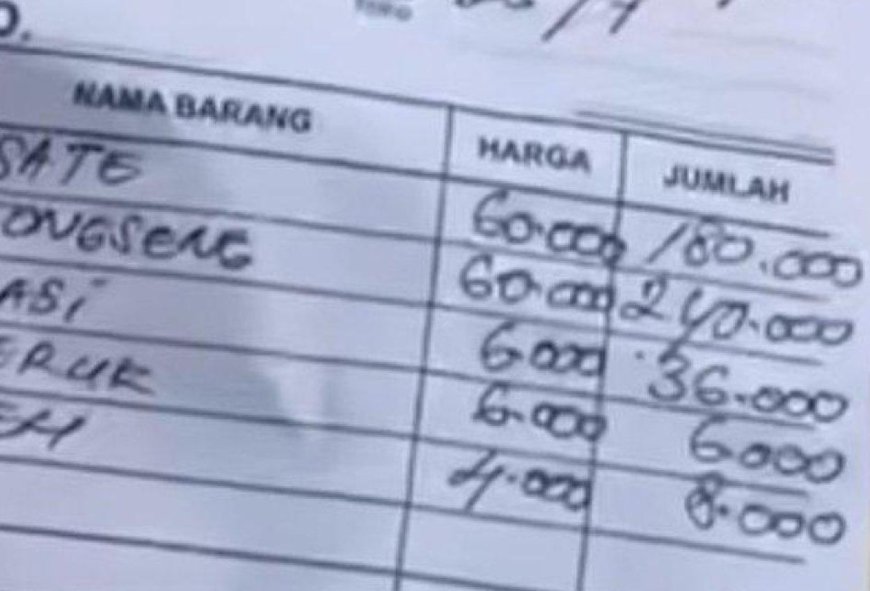 NAMA BARANG HARGA JUMLAH
SATE 60.000 180.000
ONGSENG 60.000 240.000
ASi 6.000 36.000
ERUK 6.000 6000
EH 4.000 8.000